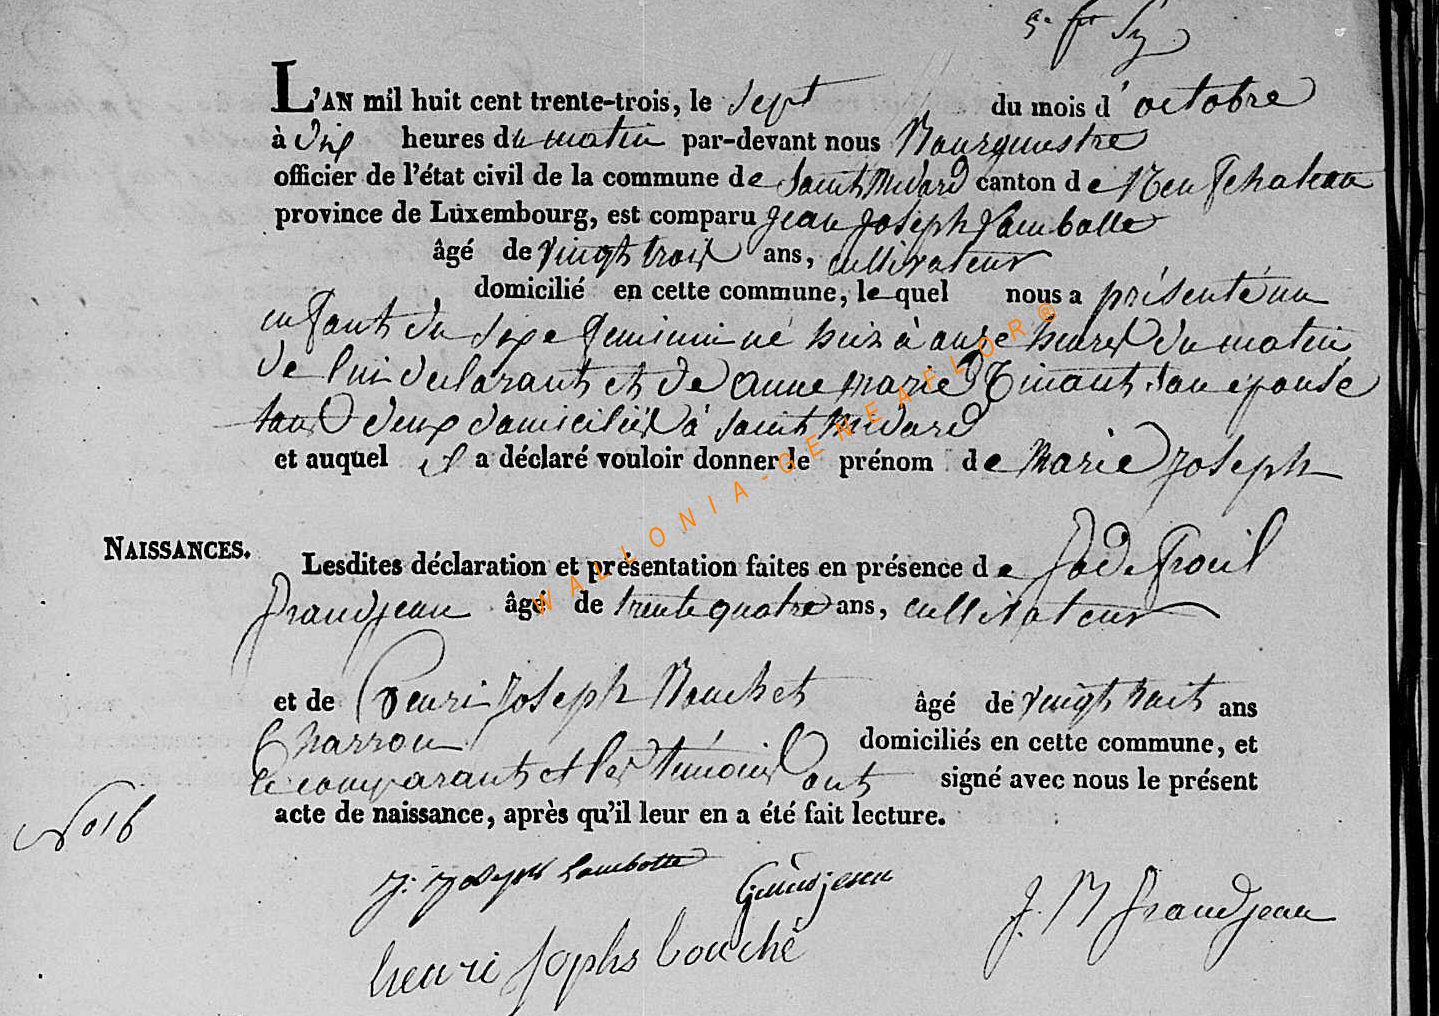 L'AN mil huit cent trente-trois, le sept du mois d'octobre
à dix heures du matin par-devant nous Bourgmestre
officier de l'état civil de la commune de Saint Médard canton de Neufchateau
province de Luxembourg, est comparu Jean Joseph Lambotte
âgé de vingt trois ans, cultivateur
domicilié en cette commune, lequel nous a présenté un
enfant du sexe feminin né hier à onze heures du matin
de lui declarant et de anne marie Tinant son épouse
tous deux domiciliés à Saint Médard
et auquel il a déclaré vouloir donner le prénom de Marie Joseph
NAISSANCES.
Lesdites déclaration et présentation faites en présence de
Grandjean âgé de trente quatre ans, cultivateur
et de henri Joseph Bouchet âgé de vingt huit ans
Charron domiciliés en cette commune, et
le comparant et les témoins ont signé avec nous le présent
acte de naissance, après qu'il leur en a été fait lecture.
No 16
J. Joseph Lambotte
Grandjean
J. N Grandjean
henri Jophs bouché
WALLONIA-GENEAFLOR®